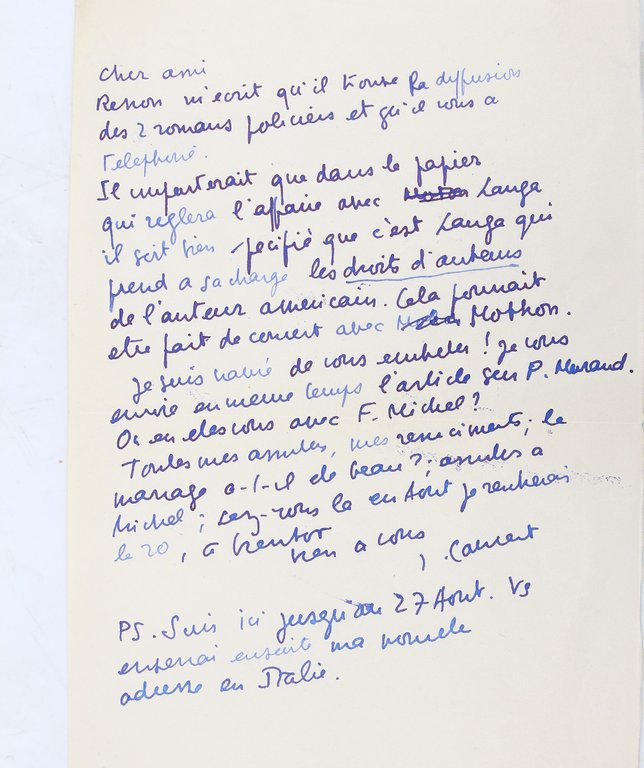 Cher ami
m'ecrit qu'il trouve la diffusion
des 2 romans policiers et qu'il vous a
Telephoné.
Il importerait que dans le papier
qui reglera l'affaire avec Langa
il soit bien specifié que c'est Langa qui
prend a sa charge les droits d'auteurs
de l'auteur americain. Cela pourrait
etre fait de concert avec Mothon.
Je suis navré de vous embeter ! Je vous
envoie en meme temps l'article sur P. Morand.
Ou en etes vous avec F. Michel ?
Toutes mes amities, mes remerciments ; le
mariage a-t-il été beau ? ; amities a
Michel ; serez-vous la en Aout je rentrerais
le 20, a bientot
bien a vous
J. Laurent
PS. Suis ici jusqu'au 27 Aout. Vs
enverrai ensuite ma nouvele
adresse en Italie.